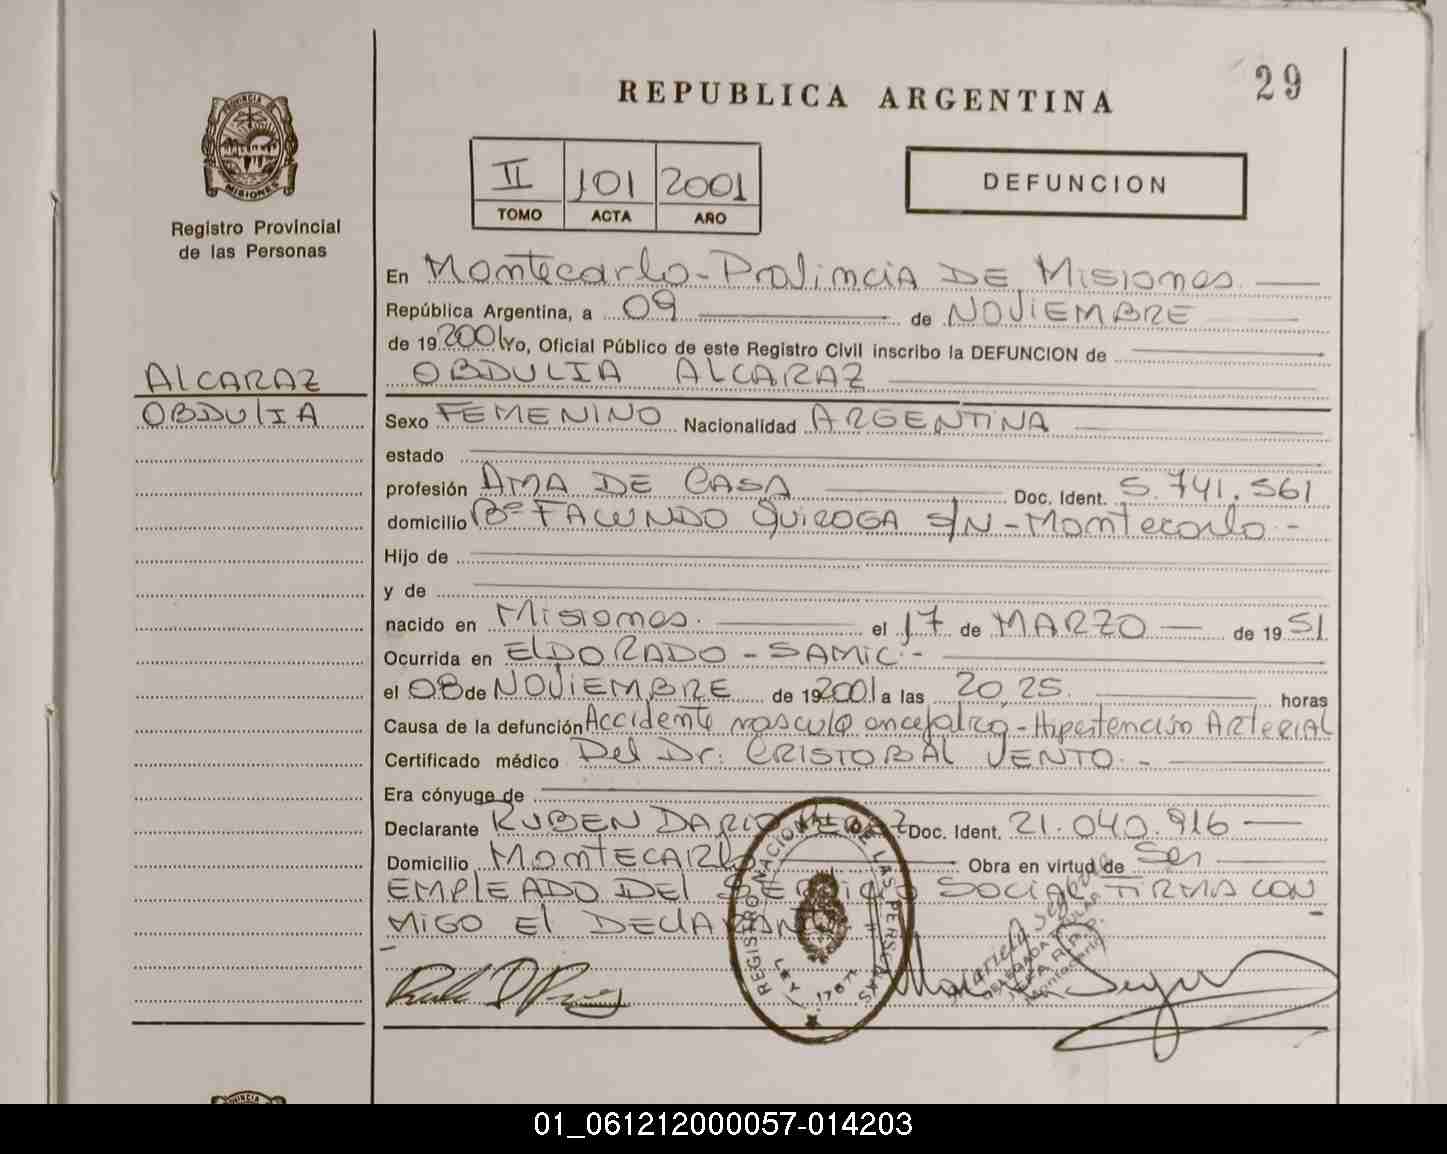 29
REPUBLICA ARGENTINA
PROVINCIA DE
MISIONES
Registro Provincial
de las Personas
II 101 2001
TOMO ACTA AÑO
DEFUNCION
ALCARAZ
OBDULIA
En Montecarlo - Provincia DE Misiones
República Argentina, a 09 de NOVIEMBRE
de 19 2001 Yo, Oficial Público de este Registro Civil inscribo la DEFUNCION de
OBDULIA ALCARAZ
Sexo FEMENINO Nacionalidad ARGENTINA
estado
profesión AMA DE CASA Doc. Ident. 5.741.561
domicilio Bº FACUNDO QUIROGA S/N - Montecarlo -
Hijo de
y de
nacido en Misiones. el 17 de MARZO de 19 51
Ocurrida en ELDORADO - SAMIC. -
el 08 de NOVIEMBRE de 19 2001 a las 20,25. horas
Causa de la defunción Accidente vasculo encefalico - Hipertencion ARTERIAL
Certificado médico Del Dr: CRISTOBAL VENTO. -
Era cónyuge de
Declarante RUBEN DARIO Doc. Ident. 21.040.916
Domicilio MONTECARLO Obra en virtud de Ser
EMPLEADO DEL SERVICIO SOCIAL FIRMA CON
MIGO El DECLARANTE
REGISTRO NACIONAL DE LAS PERSONAS
LEY 17671
Mariela Segovia
DELEGADA TITULAR
Montecarlo
01_061212000057-014203